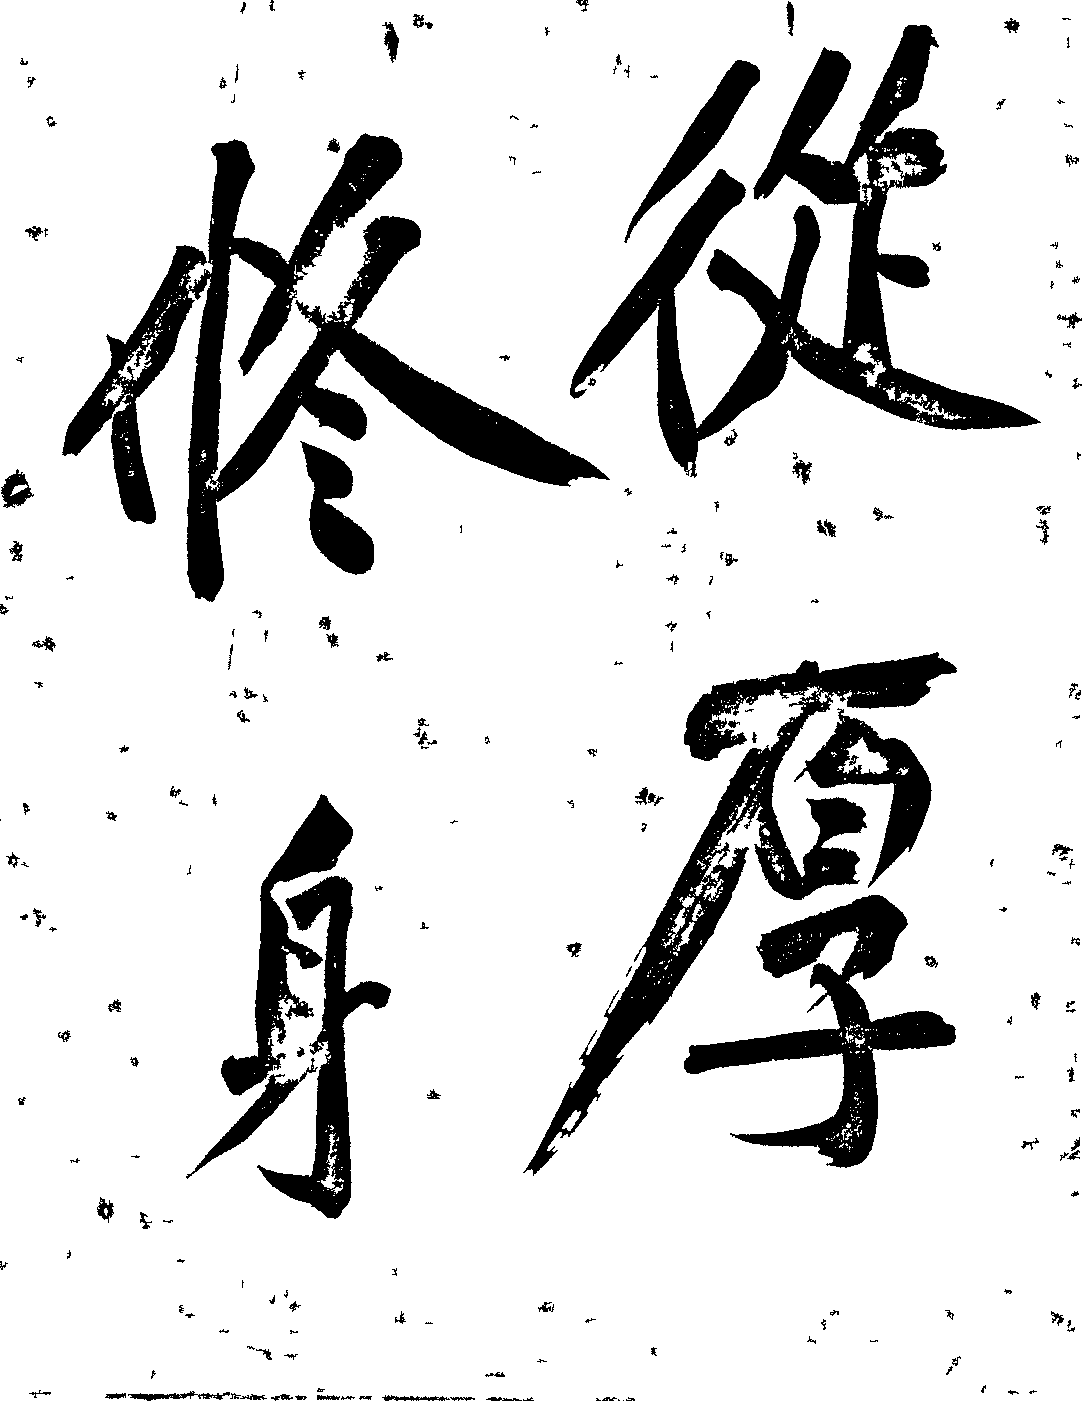 從厚
修身